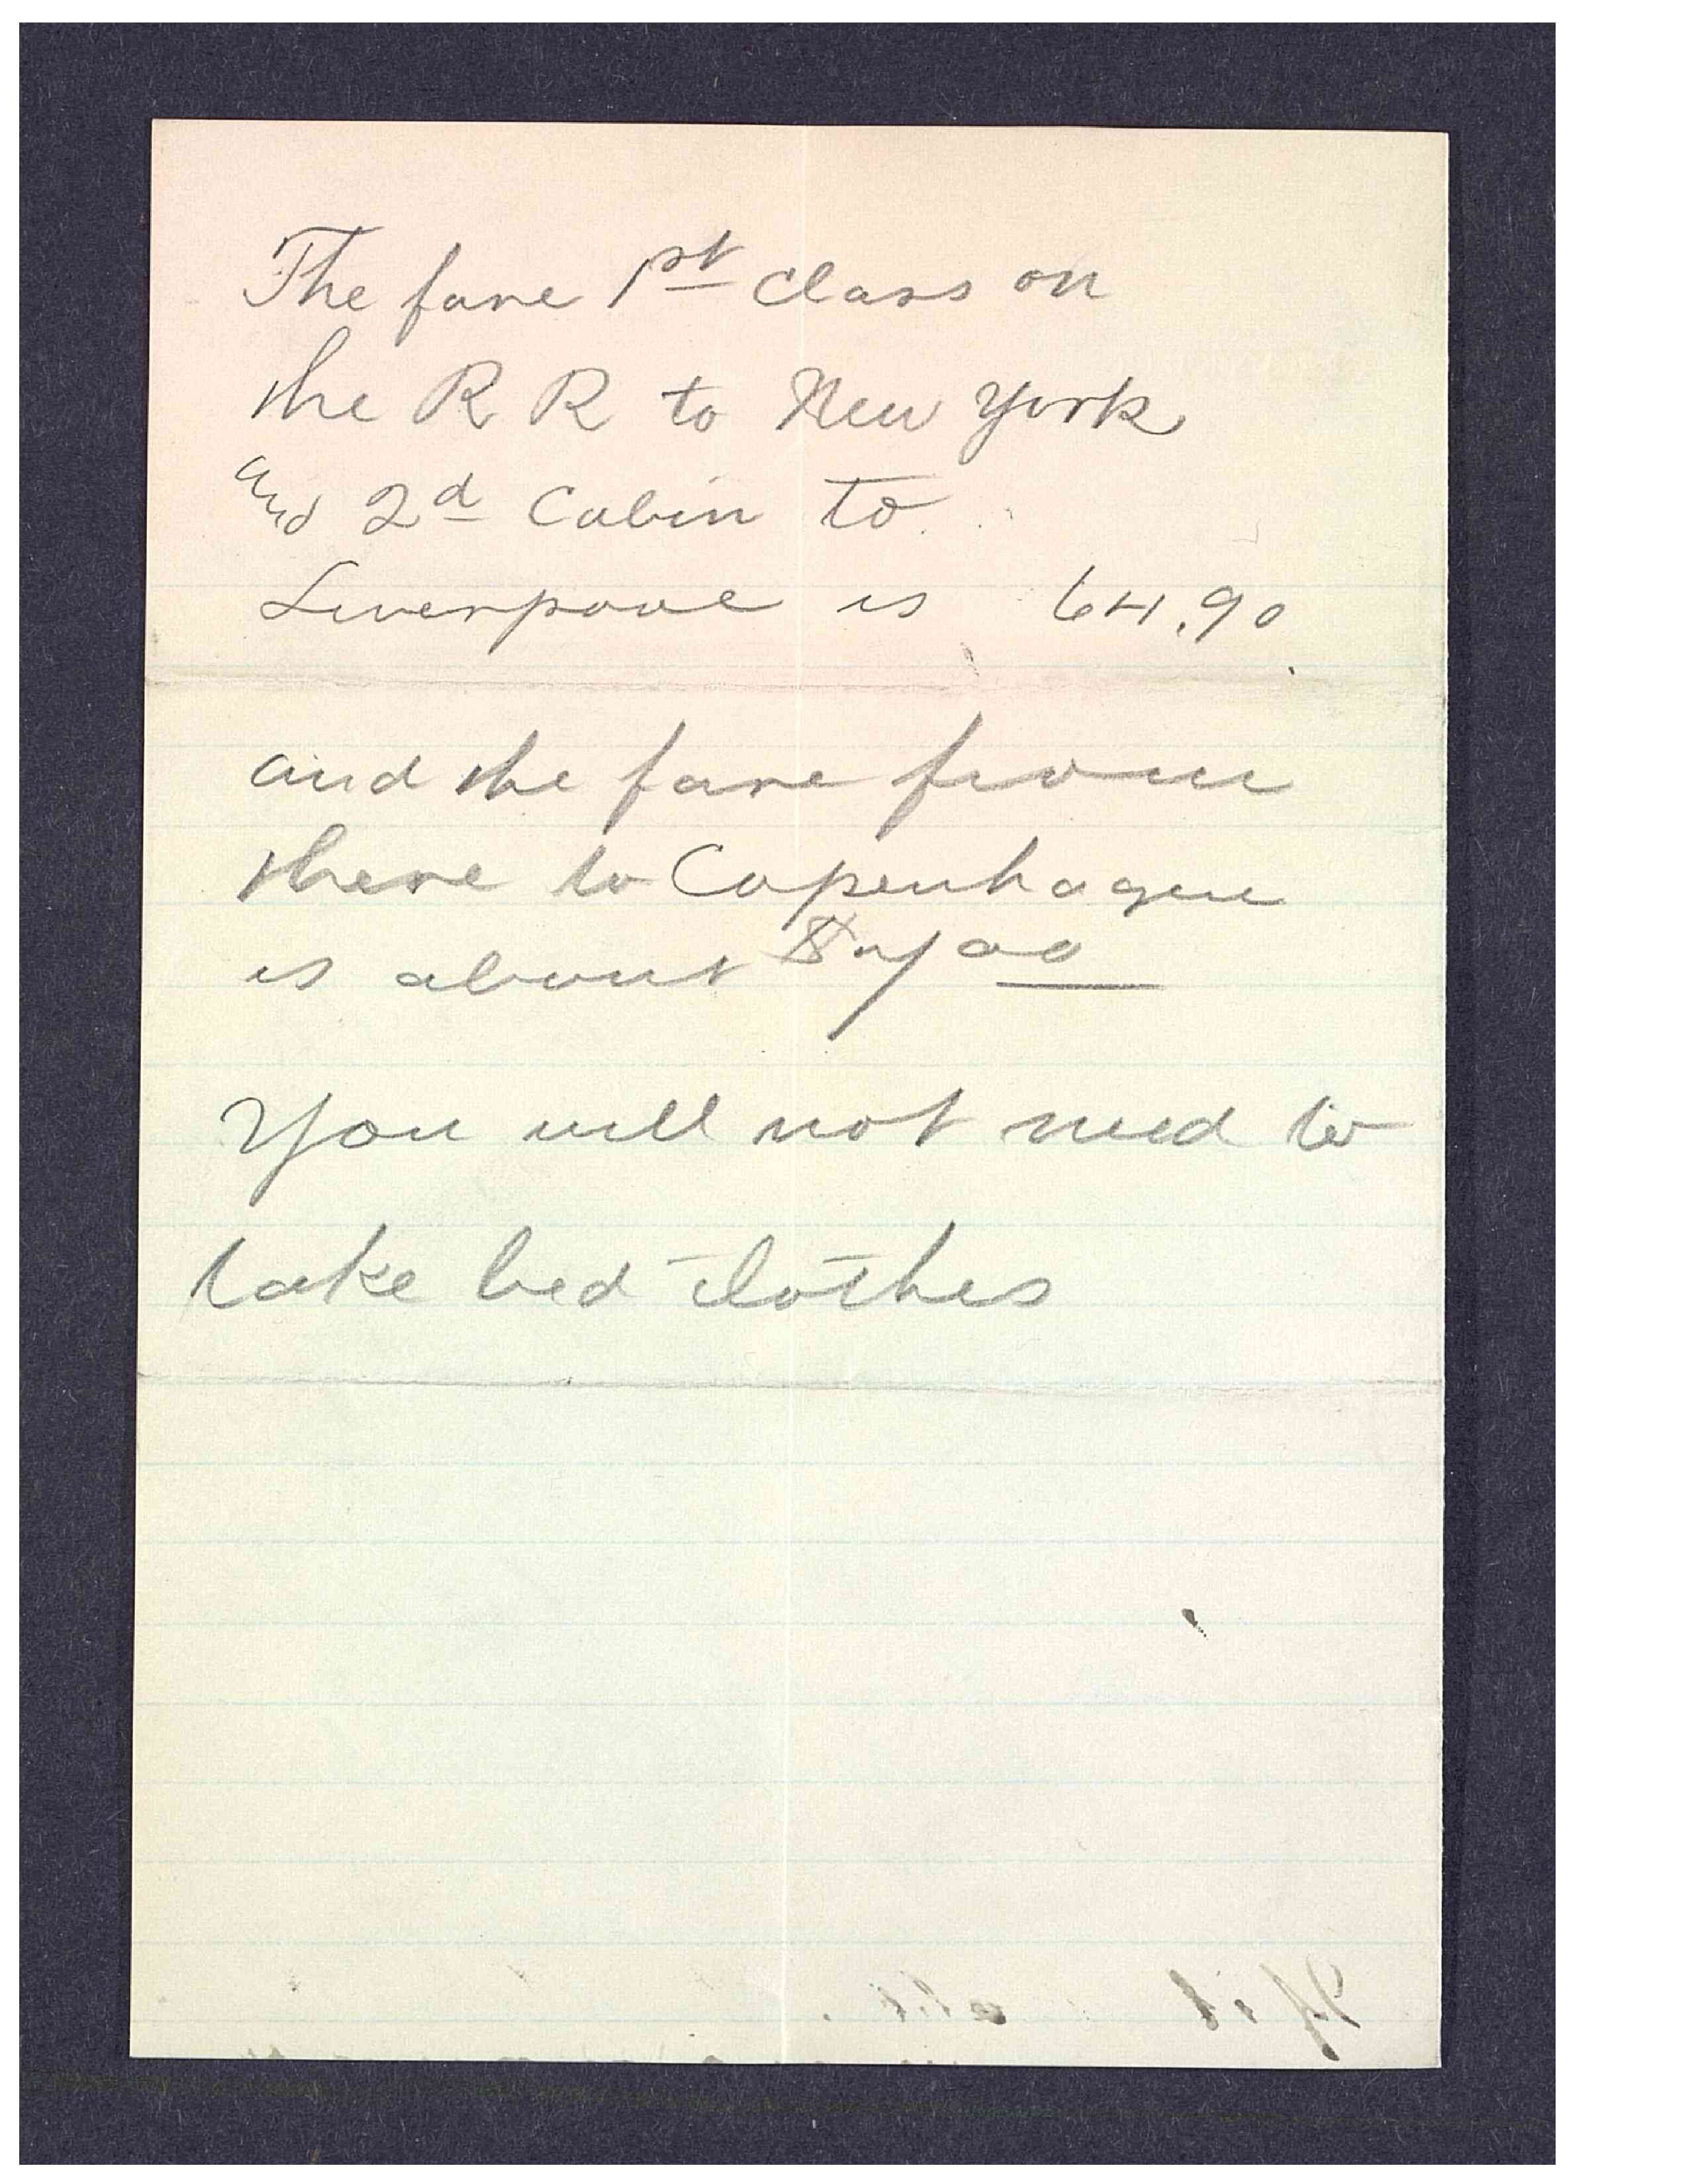 The fare 1st Class on
the R R to New York
and 2d Cabin to
Liverpool is 64.90
and the fare from
there to Copenhague
is about
You will not need to
take bed clothes